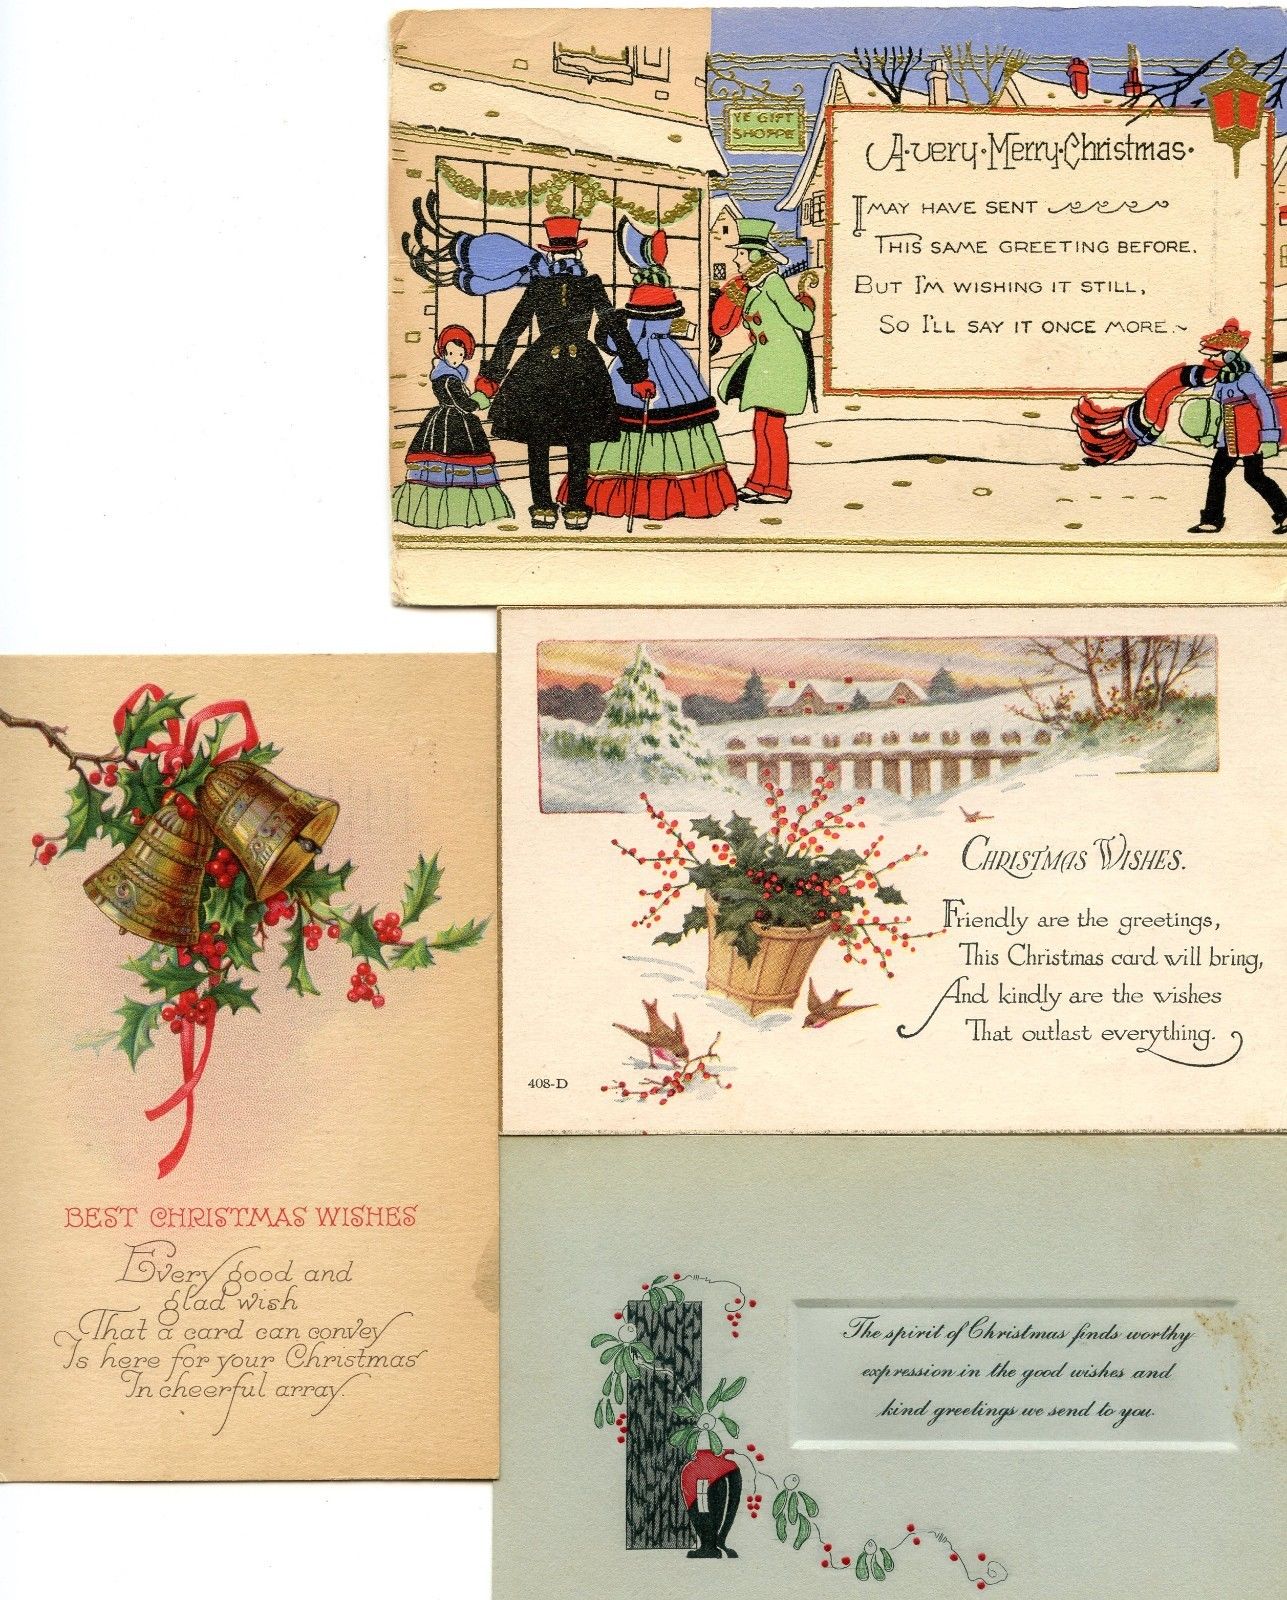 YE GIFT
SHOPPE
A·Very·Merry·Christmas·
I MAY HAVE SENT
THIS SAME GREETING BEFORE.
BUT I'M WISHING IT STILL,
SO I'LL SAY IT ONCE MORE.~
CHRISTMAS WISHES.
Friendly are the greetings,
This Christmas card will bring,
And kindly are the wishes
That outlast everything.
408-D
BEST CHRISTMAS WISHES
Every good and
glad wish
That a card can convey
Is here for your Christmas
In cheerful array.
The spirit of Christmas finds worthy
expression in the good wishes and
kind greetings we send to you.